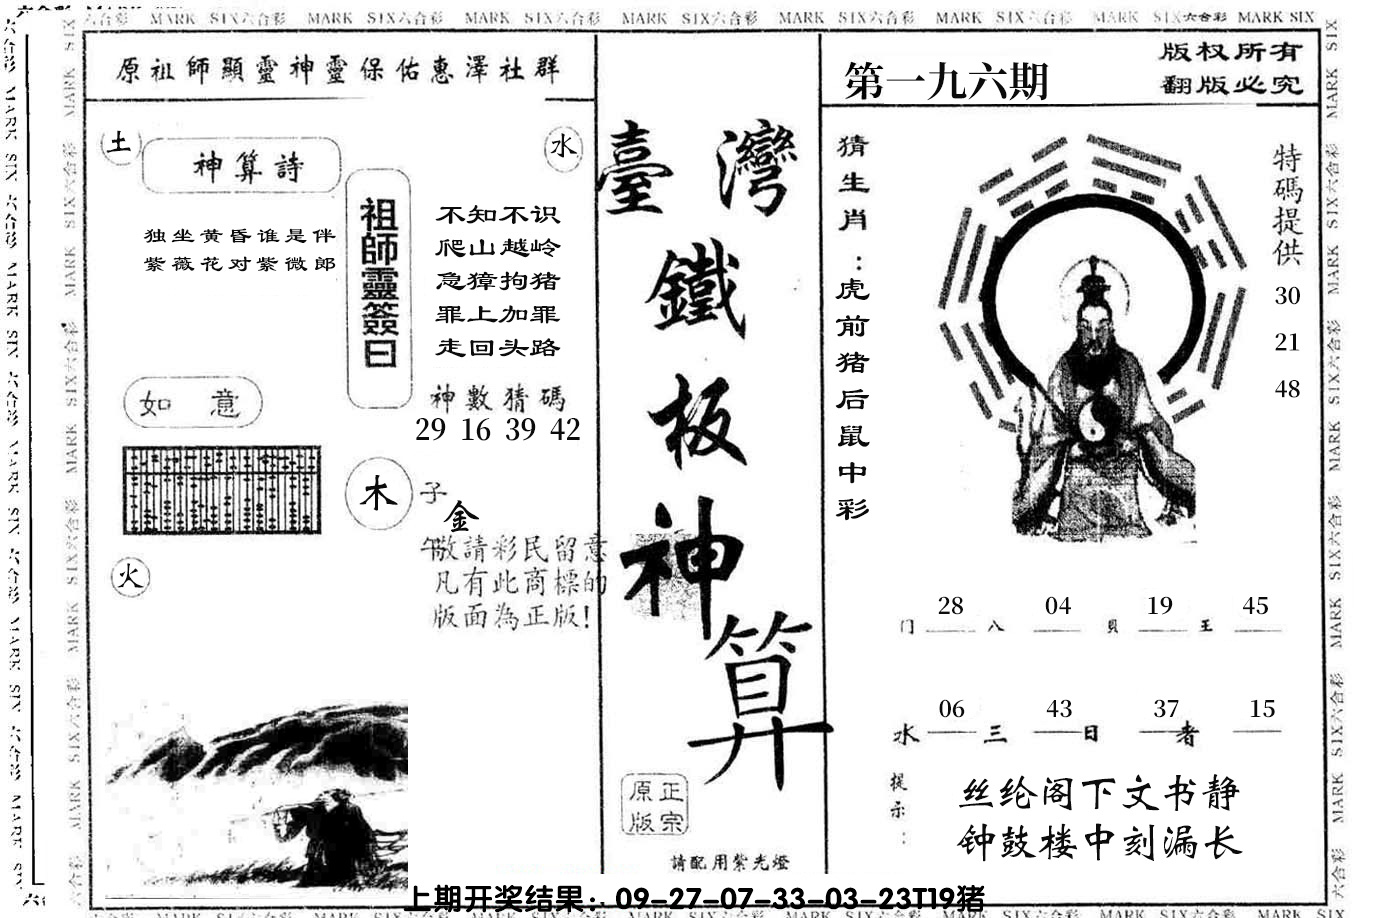 六合彩 MARK SIX六合彩 MARK SIX六合彩 MARK SIX六合彩 MARK SIX六合彩 MARK SIX六合彩 MARK SIX六合彩 MARK SIX六合彩 MARK SIX
原祖師顯靈神靈保佑惠澤社群
土
水
神算詩
独坐黄昏谁是伴
紫薇花对紫微郎
祖師靈簽曰
不知不识
爬山越岭
急獐拘猪
罪上加罪
走回头路
神數猜碼
29 16 39 42
如 意
木
子
金
午
敬請彩民留意
凡有此商標的
版面為正版!
火
臺灣
鐵
板
神
算
正宗
原版
請配用紫光燈
第一九六期
版权所有
翻版必究
猜生肖：虎前猪后鼠中彩
特碼提供
30
21
48
28 04 19 45
门 八 貝 王
06 43 37 15
水 三 日 者
提示：
丝纶阁下文书静
钟鼓楼中刻漏长
上期开奖结果：09-27-07-33-03-23T19猪